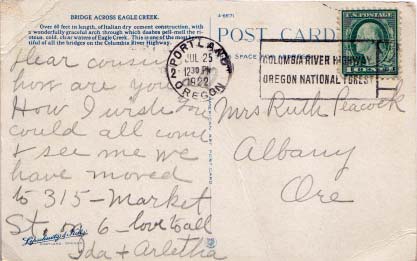 BRIDGE ACROSS EAGLE CREEK.
Over 60 feet in length, of Italian dry cement construction, with
a wonderfully graceful arch through which dashes pell-mell the
cold, clear waters of Eagle Creek. This is one of the most
tiful of all the bridges on the Columbia River Highway.
4-8671
POST CARD
SPACE
PORTLAND
2
JUL 25
1230 PM
1922
OREGON
COLUMBIA RIVER HIGHWAY
OREGON NATIONAL FOREST
U.S. POSTAGE
1 CENT 1
Dear cousin
how are you
How I wish you
could all come
& see me we
have moved
to 315 - Market
St. no 6 - love to all
Ida + Arletha
Mrs Ruth Peacock
Albany
Ore